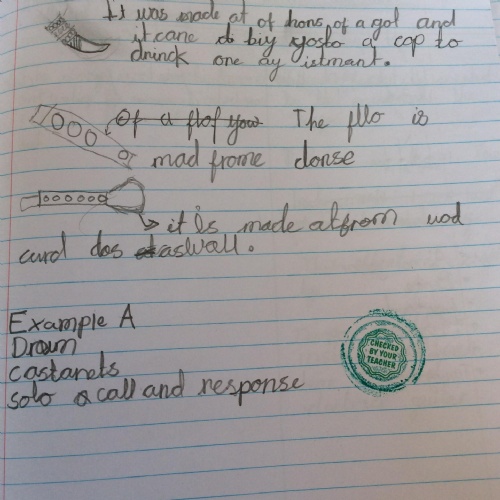 It was made at of hons of a gol and
it cane do biy yosto a cop to
drinck one ay istmant.
Of a flof yow The fllo is
mad frome donse
it is made atfrom wod
curd dos aswall.
Example A
Drum
Castanets
solo a call and response
CHECKED
BY YOUR
TEACHER